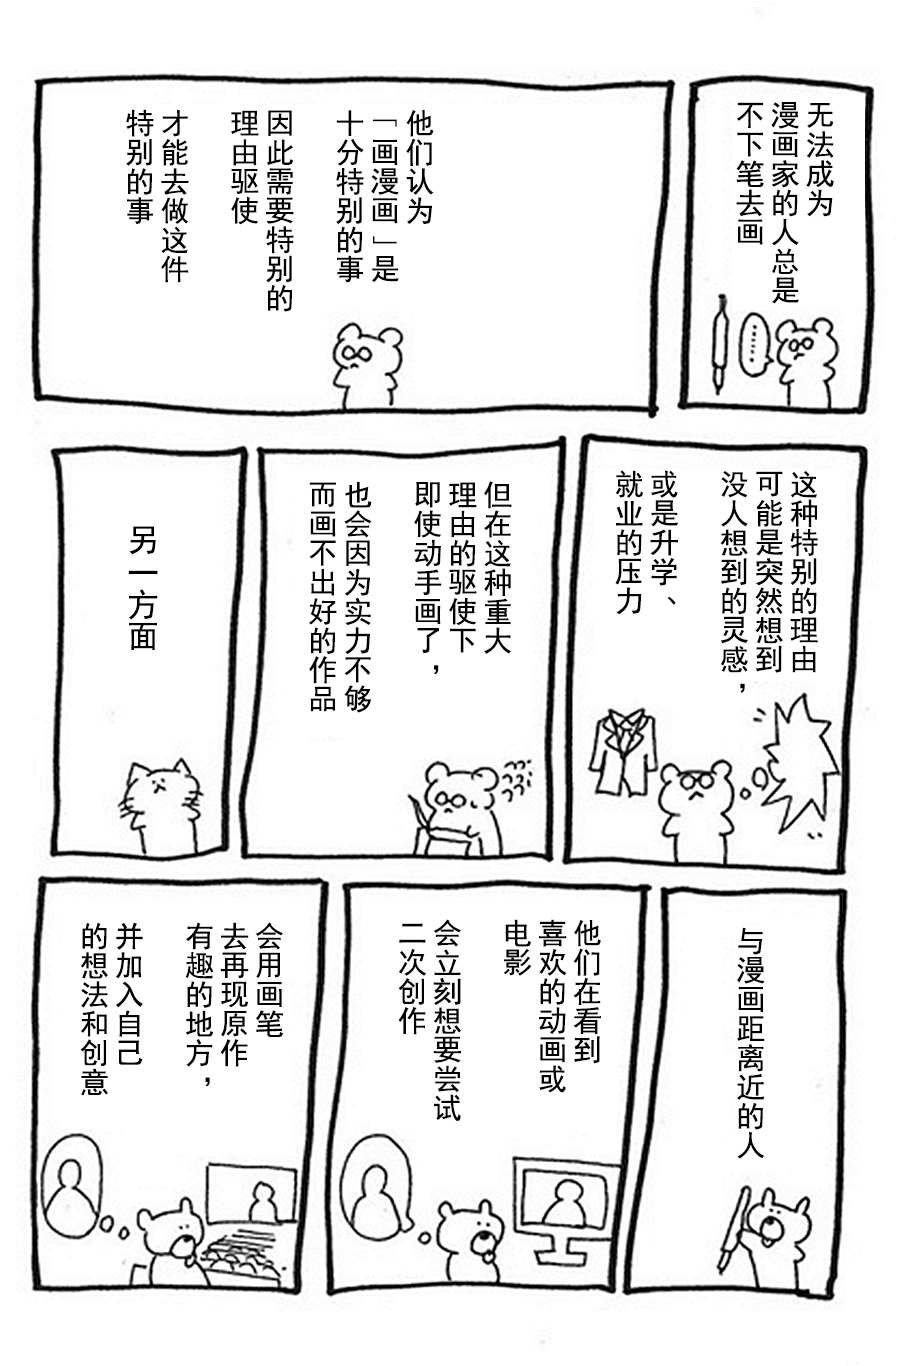 无法成为
漫画家的人总是
不下笔去画
……
他们认为
「画漫画」是
十分特别的事
因此需要特别的
理由驱使
才能去做这件
特别的事
这种特别的理由
可能是突然想到
没人想到的灵感，
或是升学、
就业的压力
但在这种重大
理由的驱使下
即使动手画了，
也会因为实力不够
而画不出好的作品
另一方面
与漫画距离近的人
他们在看到
喜欢的动画或
电影
会立刻想要尝试
二次创作
会用画笔
去再现原作
有趣的地方，
并加入自己
的想法和创意